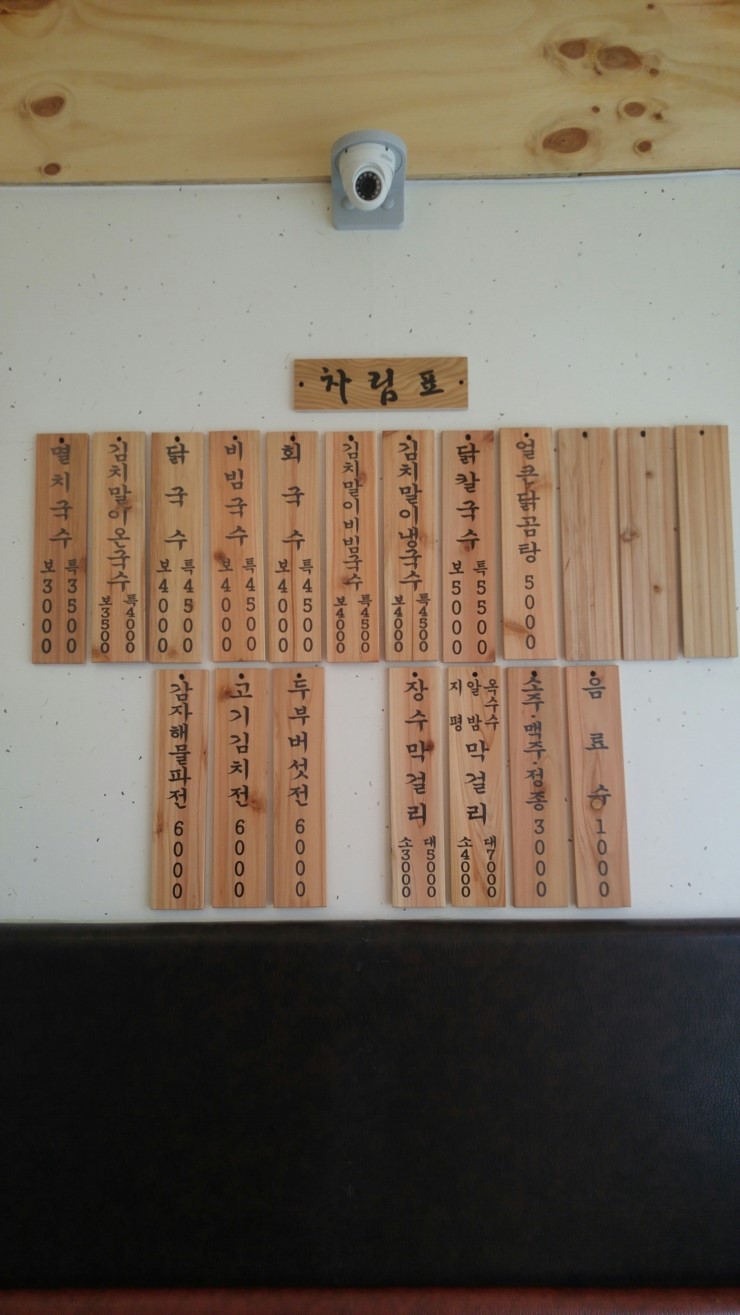 ·차림표·
멸치국수 보3000 특3500
김치말이온국수 보3500 특4000
닭국수 보4000 특4500
비빔국수 보4000 특4500
회국수 보4000 특4500
김치말이비빔국수 보4000 특4500
김치말이냉국수 보4000 특4500
닭칼국수 보5000 특5500
얼큰닭곰탕 5000
감자해물파전 6000
고기김치전 6000
두부버섯전 6000
장수막걸리 소3000 대5000
지평 알밤 옥수수 막걸리 소4000 대7000
소주·맥주·정종 3000
음료수 1000